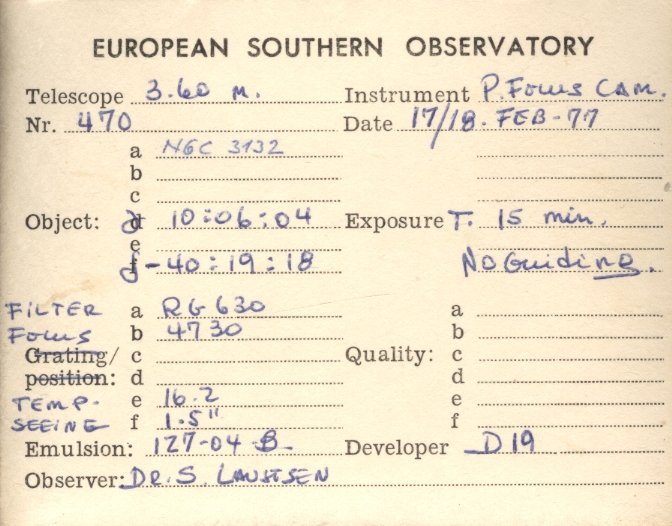 EUROPEAN SOUTHERN OBSERVATORY
Telescope 3.60 m. Instrument P. Focus CAM.
Nr. 470 Date 17/18. FEB-77
a NGC 3132
b
c
Object: d 10:06:04 Exposure T. 15 min.
e
f -40:19:18 No Guiding.
FILTER a RG 630 a
Focus b 4730 b
Grating/ c Quality: c
position: d d
TEMP. e 16.2 e
SEEING f 1.5" f
Emulsion: 127-04 B Developer D19
Observer: DR. S. LAUSTSEN